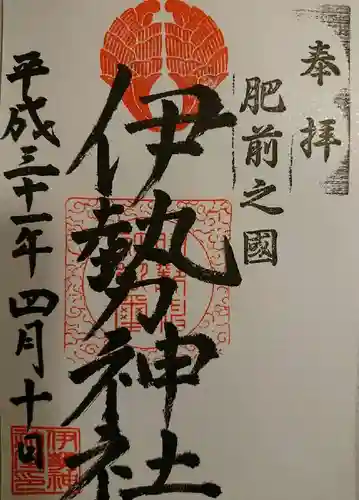 奉拝
肥前之國
伊勢神社
平成三十一年四月十日